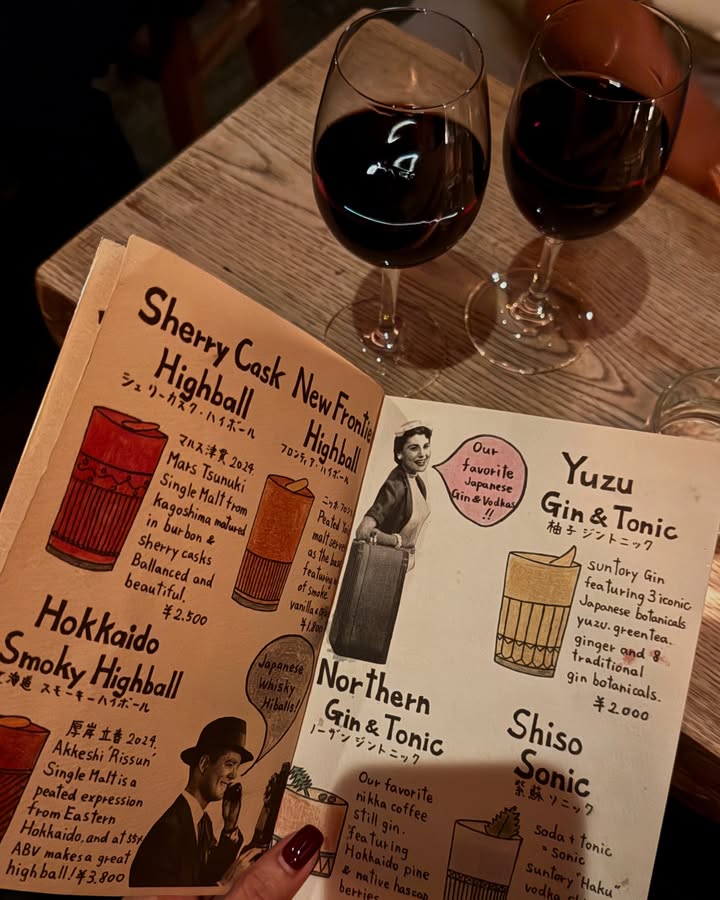 Sherry Cask
Highball
シェリーカスク・ハイボール
マルス津貫 2024
Mars Tsunuki
Single Malt from
Kagoshima matured
in burbon &
sherry casks
Ballanced and
beautiful.
¥2.500
New Frontie
Highball
フロンティア・ハイボール
ニッカ フロン
Peated
malt serve
as the bas
featuring
of smoke
vanilla &
¥1.80
Hokkaido
Smoky Highball
海道 スモーキーハイボール
厚岸 立春 2024.
Akkeshi 'Rissun'
Single Malt is a
peated expression
from Eastern
Hokkaido. and at 55%
ABV makes a great
highball! ¥3.800
Japanese
Whisky
Hiballs!
Our
favorite
Japanese
Gin & Vodkas
!!
Yuzu
Gin & Tonic
柚子 ジントニック
suntory Gin
featuring 3 iconic
Japanese botanicals
yuzu. green tea.
ginger and 8
traditional
gin botanicals.
¥2.000
Northern
Gin & Tonic
ノーザン ジントニック
Our favorite
nikka coffee
still gin.
featuring
Hokkaido pine
& native hascap
berries
Shiso
Sonic
紫蘇 ソニック
soda + tonic
= sonic
suntory "Haku"
vodka